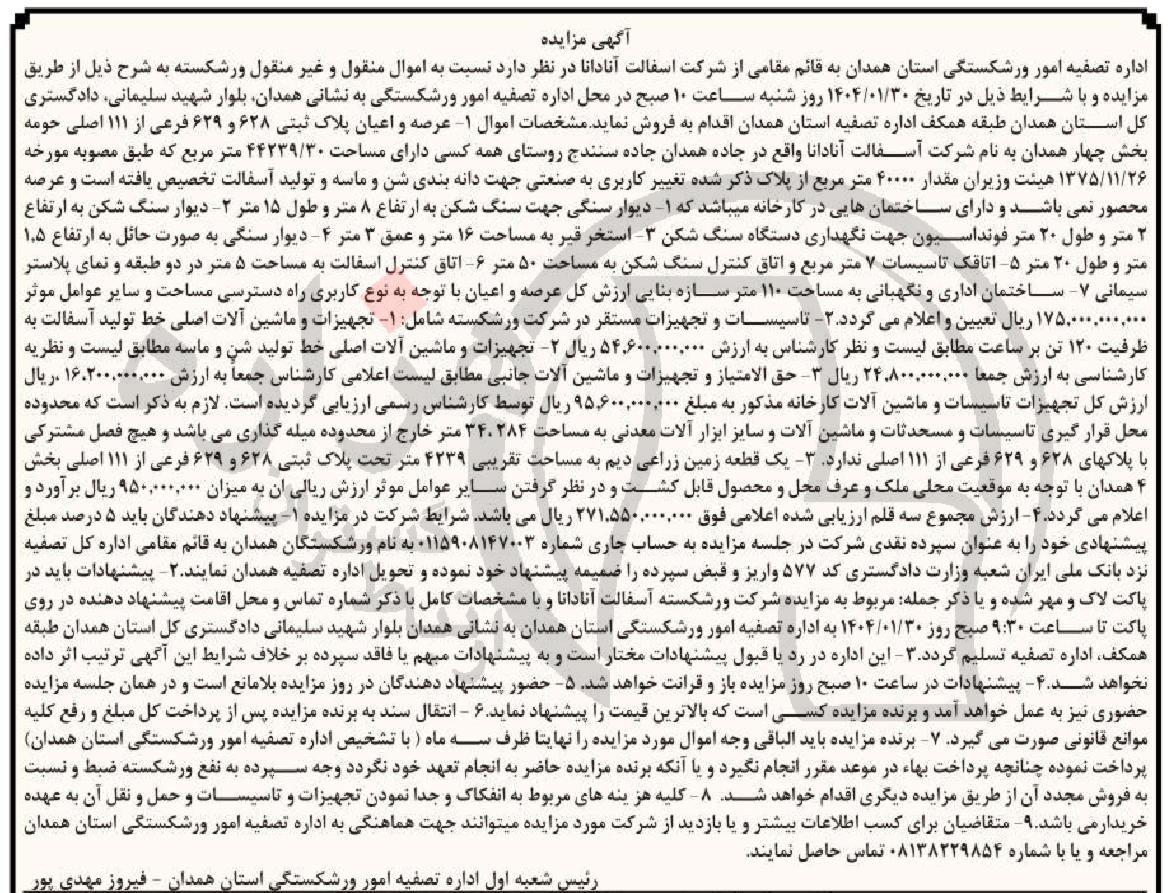 آگهی مزایده
اداره تصفیه امور ورشکستگی استان همدان به قائم مقامی از شرکت اسفالت آنادانا در نظر دارد نسبت به اموال منقول و غیر منقول ورشکسته به شرح ذیل از طریق
مزایده و با شـــرایط ذیل در تاریخ ۱۴۰۴/۰۱/۳۰ روز شنبه ساعت ۱۰ صبح در محل اداره تصفیه امور ورشکستگی به نشانی همدان، بلوار شهید سلیمانی، دادگستری
کل اســـتان همدان طبقه همکف اداره تصفیه استان همدان اقدام به فروش نماید.مشخصات اموال ۱- عرصه و اعیان پلاک ثبتی ۶۲۸ و ۶۲۹ فرعی از ۱۱۱ اصلی حومه
بخش چهار همدان به نام شرکت آســـفالت آنادانا واقع در جاده همدان جاده سنندج روستای همه کسی دارای مساحت ۴۴۲۳۹/۳۰ متر مربع که طبق مصوبه مورخه
۱۳۷۵/۱۱/۲۶ هیئت وزیران مقدار ۴۰۰۰۰ متر مربع از پلاک ذکر شده تغییر کاربری به صنعتی جهت دانه بندی شن و ماسه و تولید آسفالت تخصیص یافته است و عرصه
محصور نمی باشـــد و دارای ســـاختمان هایی در کارخانه میباشد که ۱- دیوار سنگی جهت سنگ شکن به ارتفاع ۸ متر و طول ۱۵ متر ۲- دیوار سنگ شکن به ارتفاع
۲ متر و طول ۲۰ متر فونداســـیون جهت نگهداری دستگاه سنگ شکن ۳- استخر قیر به مساحت ۱۶ متر و عمق ۳ متر ۴- دیوار سنگی به صورت حائل به ارتفاع ۱,۵
متر و طول ۲۰ متر ۵- اتاقک تاسیسات ۷ متر مربع و اتاق کنترل سنگ شکن به مساحت ۵۰ متر ۶- اتاق کنترل اسفالت به مساحت ۵ متر در دو طبقه و نمای پلاستر
سیمانی ۷- ســـاختمان اداری و نگهبانی به مساحت ۱۱۰ متر ســـازه بنایی ارزش کل عرصه و اعیان با توجه به نوع کاربری راه دسترسی مساحت و سایر عوامل موثر
۱۷۵,۰۰۰,۰۰۰,۰۰۰ ریال تعیین و اعلام می گردد.۲- تاسیســـات و تجهیزات مستقر در شرکت ورشکسته شامل: ۱- تجهیزات و ماشین آلات اصلی خط تولید آسفالت به
ظرفیت ۱۲۰ تن بر ساعت مطابق لیست و نظر کارشناس به ارزش ۵۴,۶۰۰,۰۰۰,۰۰۰ ریال ۲- تجهیزات و ماشین آلات اصلی خط تولید شن و ماسه مطابق لیست و نظریه
کارشناسی به ارزش جمعا ۲۴,۸۰۰,۰۰۰,۰۰۰ ریال ۳- حق الامتیاز و تجهیزات و ماشین آلات جانبی مطابق لیست اعلامی کارشناس جمعاً به ارزش ۱۶,۲۰۰,۰۰۰,۰۰۰ ریال
ارزش کل تجهیزات تاسیسات و ماشین آلات کارخانه مذکور به مبلغ ۹۵,۶۰۰,۰۰۰,۰۰۰ ریال توسط کارشناس رسمی ارزیابی گردیده است. لازم به ذکر است که محدوده
محل قرار گیری تاسیسات و مسحدثات و ماشین آلات و سایز ابزار آلات معدنی به مساحت ۳۴,۲۸۴ متر خارج از محدوده میله گذاری می باشد و هیچ فصل مشترکی
با پلاکهای ۶۲۸ و ۶۲۹ فرعی از ۱۱۱ اصلی ندارد. ۳- یک قطعه زمین زراعی دیم به مساحت تقریبی ۴۲۳۹ متر تحت پلاک ثبتی ۶۲۸ و ۶۲۹ فرعی از ۱۱۱ اصلی بخش
۴ همدان با توجه به موقعیت محلی ملک و عرف محل و محصول قابل کشـــت و در نظر گرفتن ســـایر عوامل موثر ارزش ریالی ان به میزان ۹۵۰,۰۰۰,۰۰۰ ریال برآورد و
اعلام می گردد.۴- ارزش مجموع سه قلم ارزیابی شده اعلامی فوق ۲۷۱,۵۵۰,۰۰۰,۰۰۰ ریال می باشد. شرایط شرکت در مزایده ۱- پیشنهاد دهندگان باید ۵ درصد مبلغ
پیشنهادی خود را به عنوان سپرده نقدی شرکت در جلسه مزایده به حساب جاری شماره ۰۱۱۵۹۰۸۱۴۷۰۰۳به نام ورشکستگان همدان به قائم مقامی اداره کل تصفیه
نزد بانک ملی ایران شعبه وزارت دادگستری کد ۵۷۷ واریز و قبض سپرده را ضمیمه پیشنهاد خود نموده و تحویل اداره تصفیه همدان نمایند.۲- پیشنهادات باید در
پاکت لاک و مهر شده و با ذکر جمله: مربوط به مزایده شرکت ورشکسته آسفالت آنادانا و با مشخصات کامل با ذکر شماره تماس و محل اقامت پیشنهاد دهنده در روی
پاکت تا ســـاعت ۹:۳۰ صبح روز ۱۴۰۴/۰۱/۳۰ به اداره تصفیه امور ورشکستگی استان همدان به نشانی همدان بلوار شهید سلیمانی دادگستری کل استان همدان طبقه
همکف، اداره تصفیه تسلیم گردد.۳- این اداره در رد یا قبول پیشنهادات مختار است و به پیشنهادات مبهم یا فاقد سپرده بر خلاف شرایط این آگهی ترتیب اثر داده
نخواهد شـــد.۴- پیشنهادات در ساعت ۱۰ صبح روز مزایده باز و قرائت خواهد شد. ۵- حضور پیشنهاد دهندگان در روز مزایده بلامانع است و در همان جلسه مزایده
حضوری نیز به عمل خواهد آمد و برنده مزایده کســـی است که بالاترین قیمت را پیشنهاد نماید.۶ - انتقال سند به برنده مزایده پس از پرداخت کل مبلغ و رفع کلیه
موانع قانونی صورت می گیرد. ۷- برنده مزایده باید الباقی وجه اموال مورد مزایده را نهایتا ظرف ســـه ماه ( با تشخیص اداره تصفیه امور ورشکستگی استان همدان)
پرداخت نموده چنانچه پرداخت بهاء در موعد مقرر انجام نگیرد و یا آنکه برنده مزایده حاضر به انجام تعهد خود نگردد وجه ســـپرده به نفع ورشکسته ضبط و نسبت
به فروش مجدد آن از طریق مزایده دیگری اقدام خواهد شـــد. ۸- کلیه هز ینه های مربوط به انفکاک و جدا نمودن تجهیزات و تاسیســـات و حمل و نقل آن به عهده
خریدارمی باشد.۹- متقاضیان برای کسب اطلاعات بیشتر و یا بازدید از شرکت مورد مزایده میتوانند جهت هماهنگی به اداره تصفیه امور ورشکستگی استان همدان
مراجعه و یا با شماره ۰۸۱۳۸۲۲۹۸۵۴ تماس حاصل نمایند.
رئیس شعبه اول اداره تصفیه امور ورشکستگی استان همدان - فیروز مهدی پور